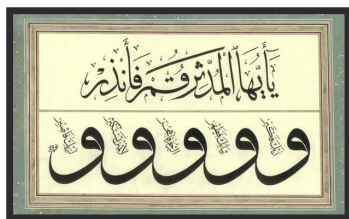 يَأَيُّهَا ٱلْمُدَّثِّرُ قُمْ فَأَنْذِرْ
و ربك فكبر و ثيابك فطهر و الرجز فاهجر و لا تمنن تستكثر و لربك فاصبر